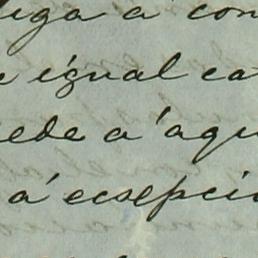 iga a' con
e igual ca
ede a' aqu
a' ecsepcio